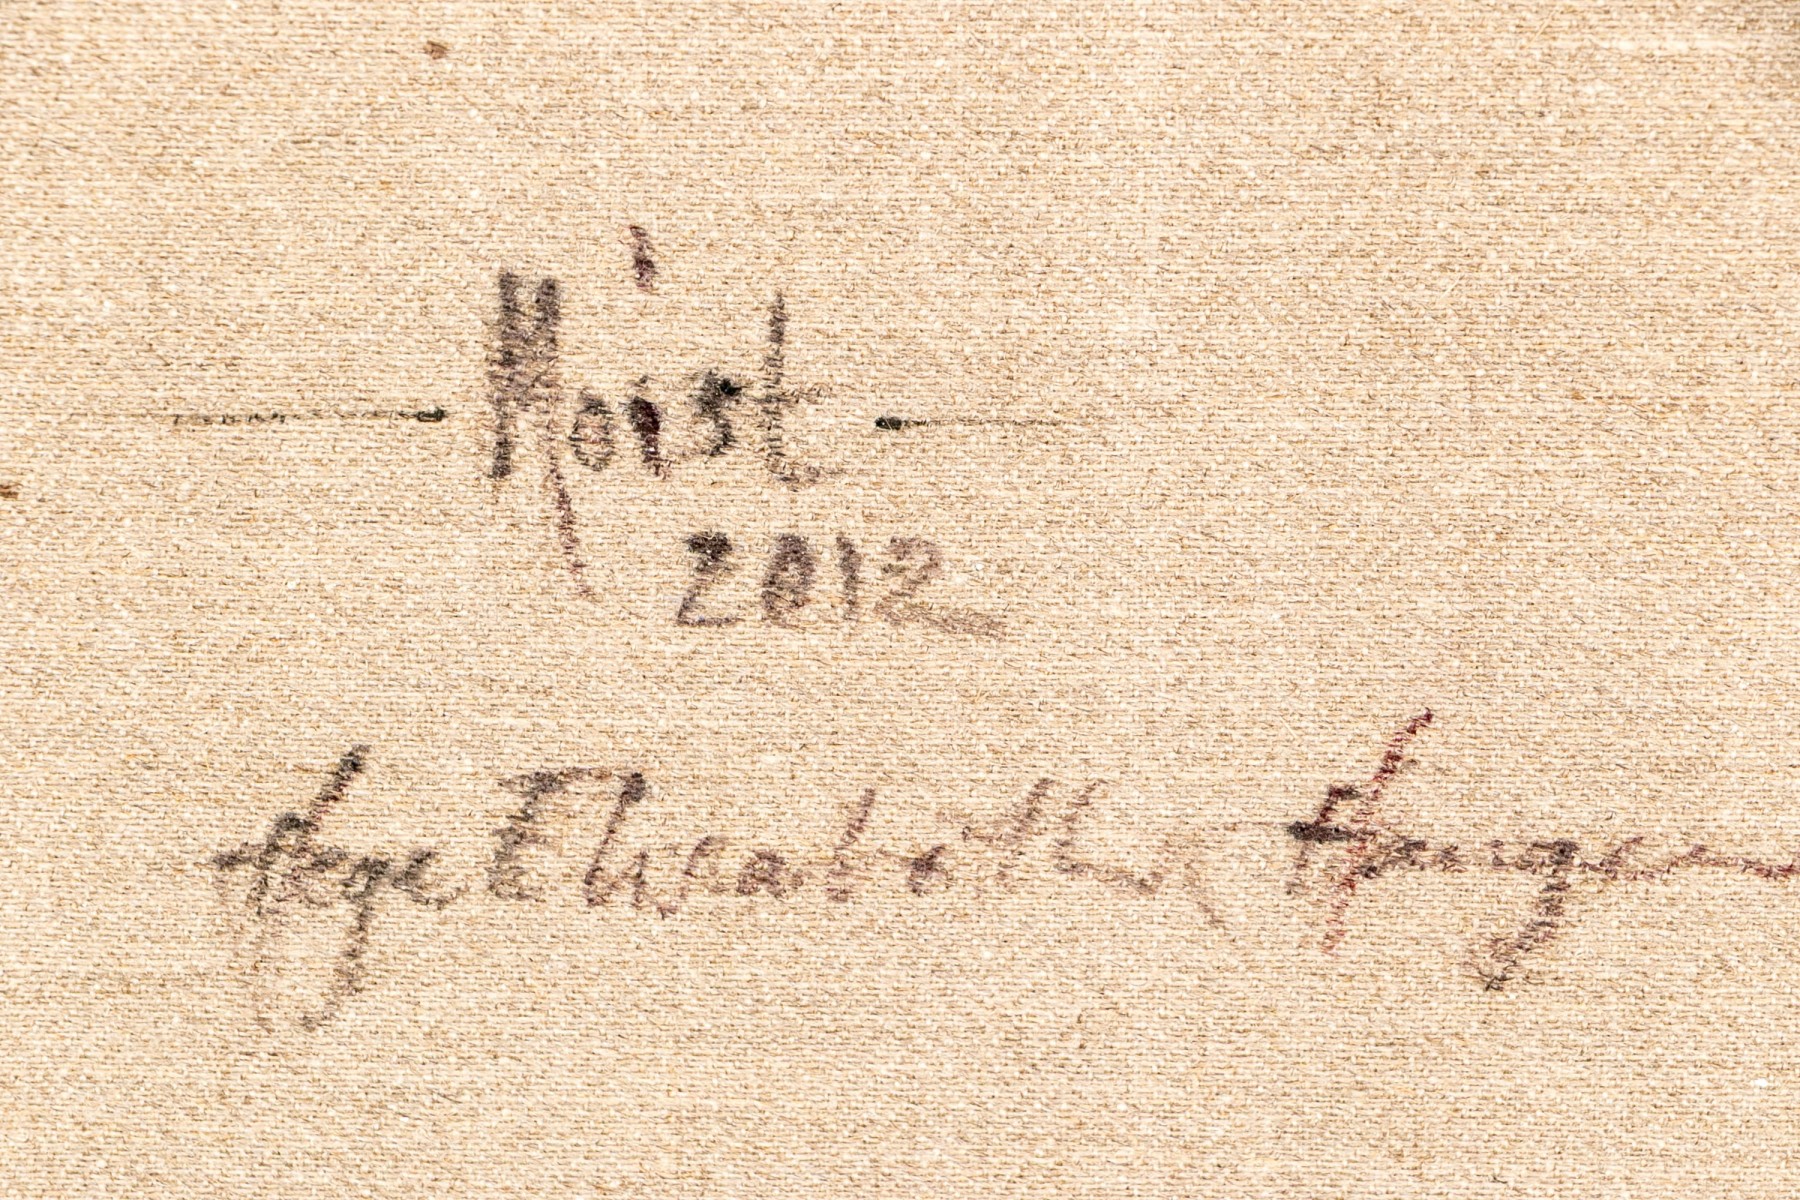 - Moist -
2012
Inge Elisabeth